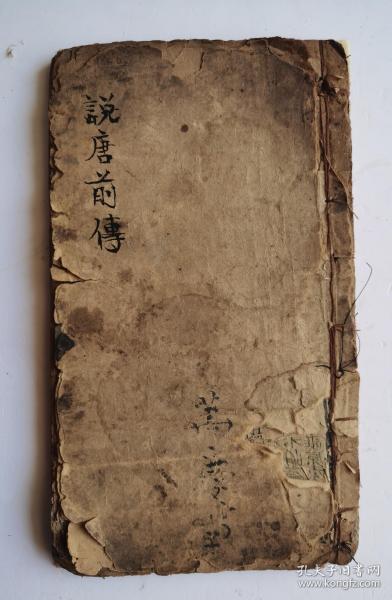 說唐前傳
萬慶
孔夫子旧书网
www.kongfz.com